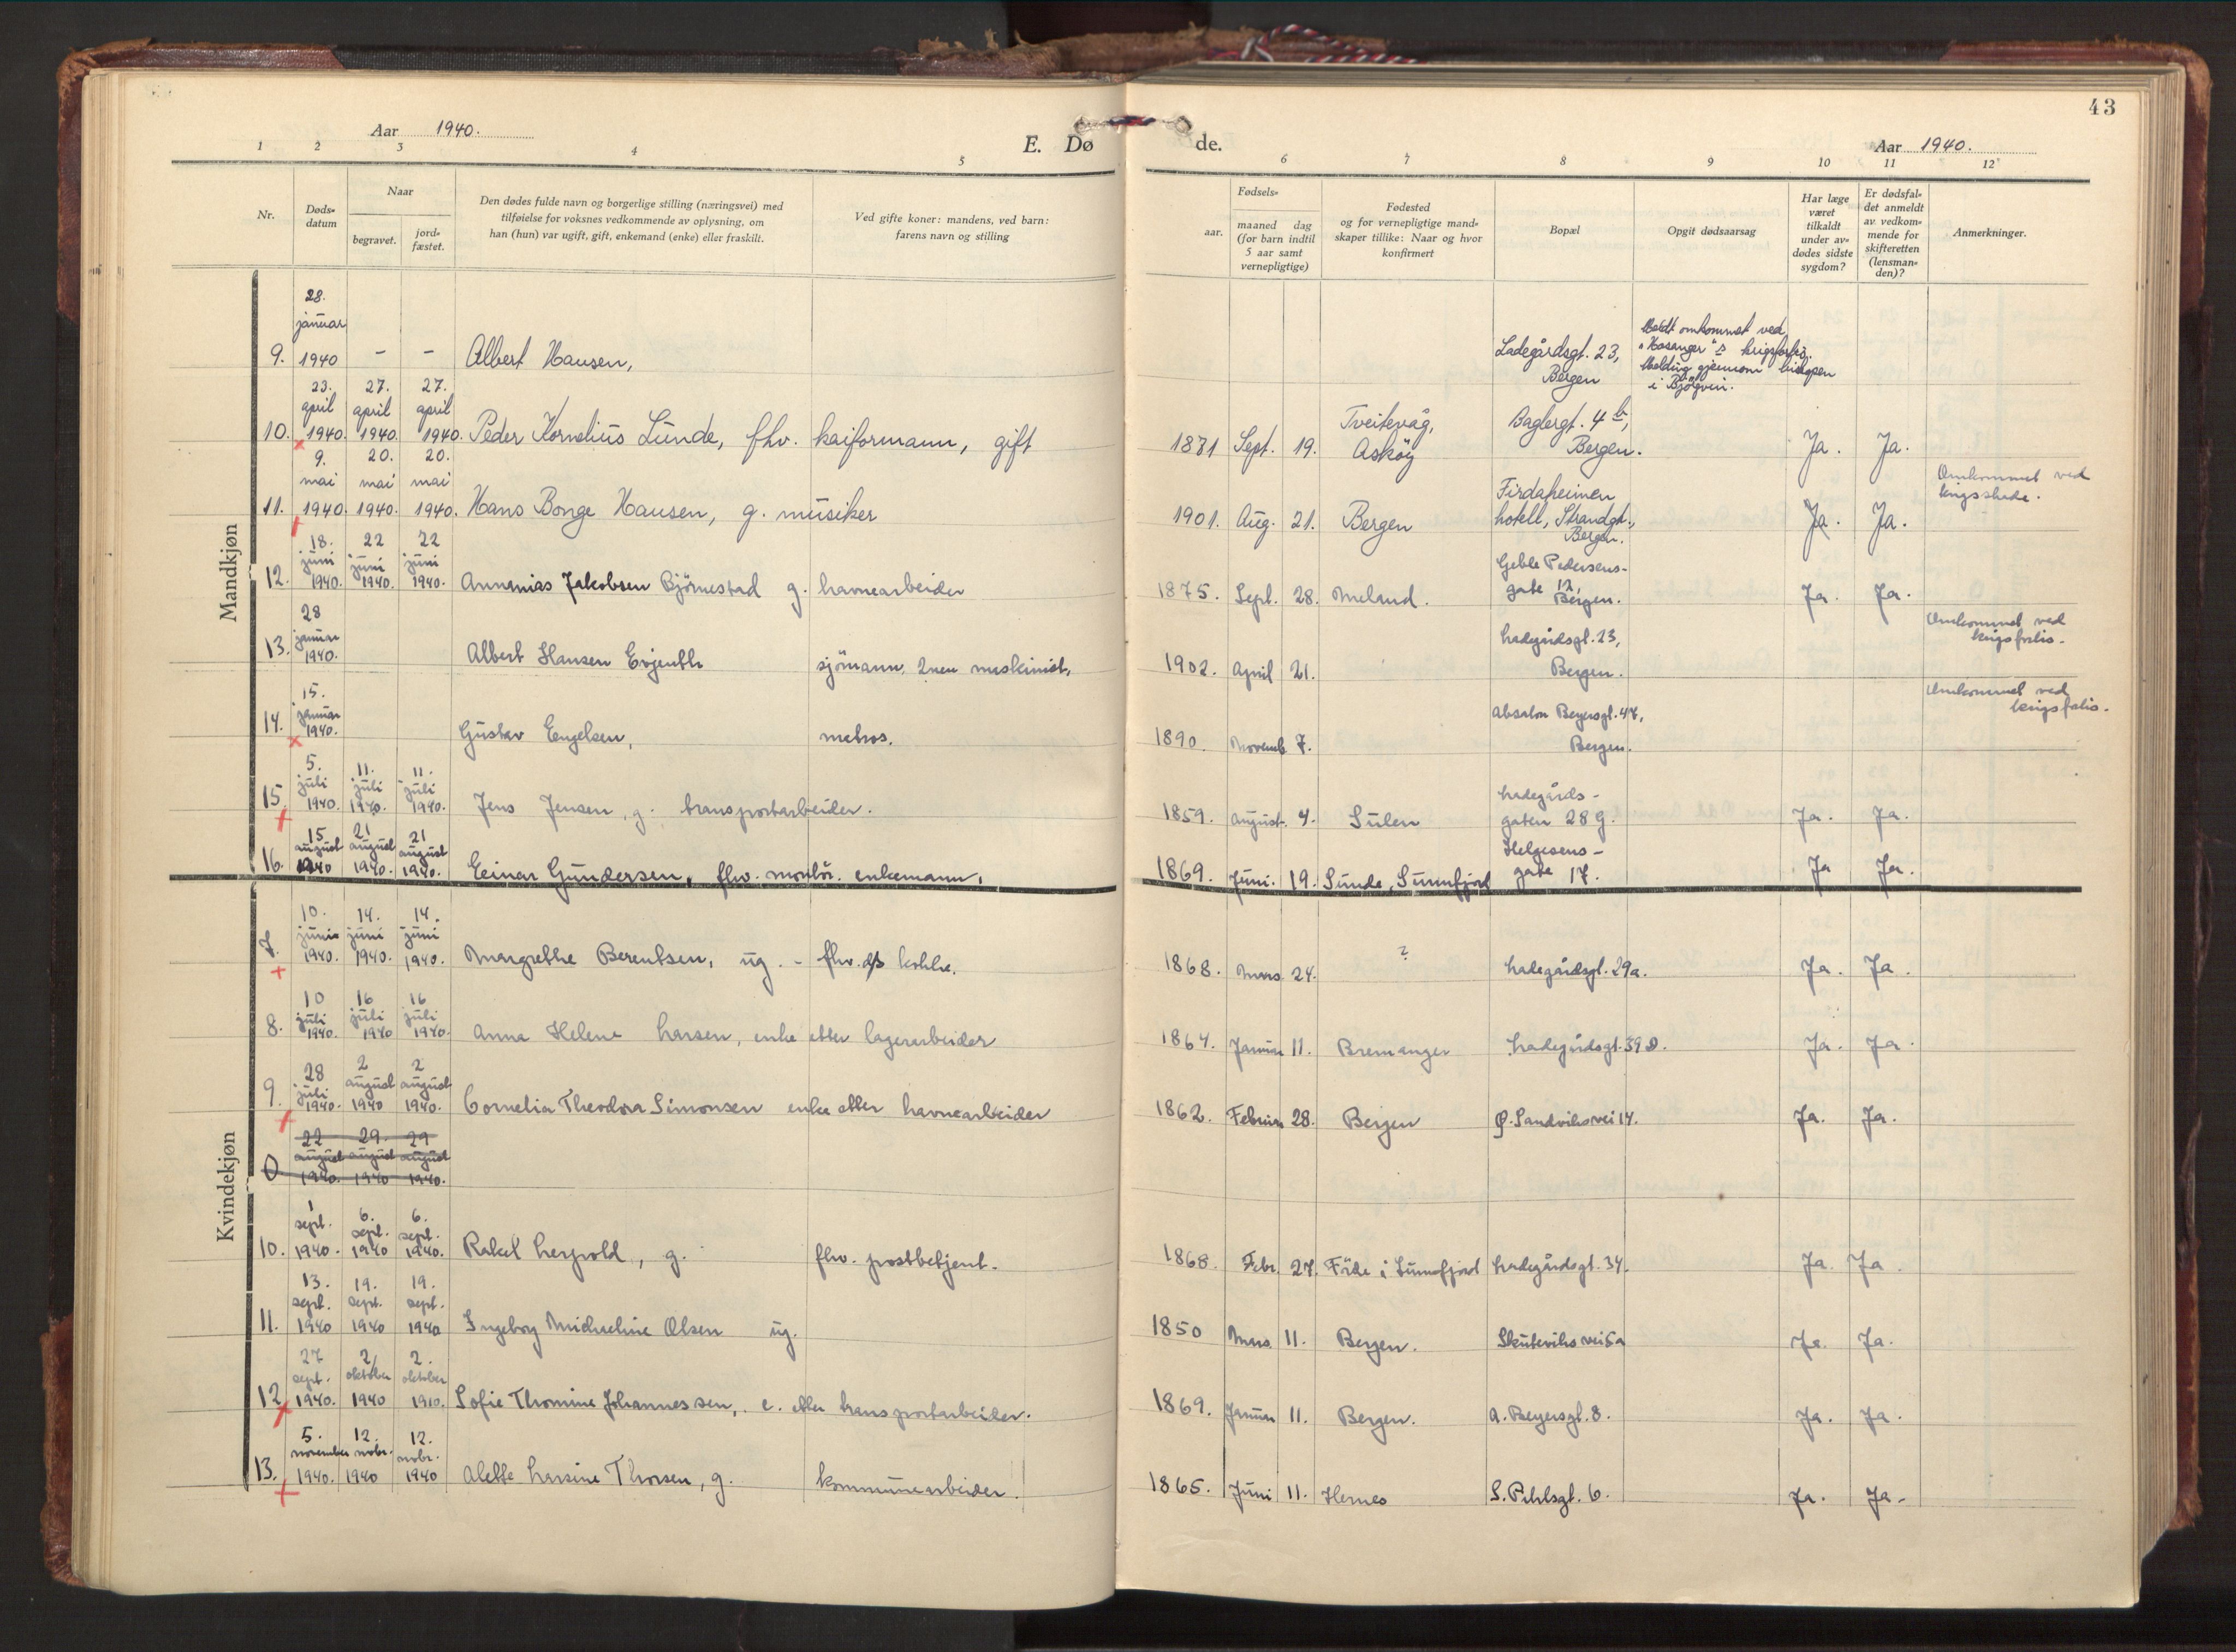 43
Aar 1940.
E. Dø
de.
Aar 1940.
1 2 3 4 5 6 7 8 9 10 11 12
Nr.
Døds-
datum
Naar
begravet.
jord-
fæstet.
Den dødes fulde navn og borgerlige stilling (næringsvei) med
tilføielse for voksnes vedkommende av oplysning, om
han (hun) var ugift, gift, enkemand (enke) eller fraskilt.
Ved gifte koner: mandens, ved barn:
farens navn og stilling
Fødsels-
aar.
maaned dag
(for barn indtil
5 aar samt
vernepligtige)
Fødested
og for vernepligtige mand-
skaper tillike: Naar og hvor
konfirmert
Bopæl
Opgit dødsaarsag
Har læge
været
tilkaldt
under av-
dødes sidste
sygdom?
Er dødsfal-
det anmeldt
av vedkom-
mende for
skifteretten
(lensman-
den)?
Anmerkninger.
Mandkjøn
9. 28. januar 1940 - - Albert Hansen,
Ladegårdsgt. 23,
Bergen
Meldt omkommet ved
"Hosanger"s krigsforlis.
Melding gjennom bispen
i Bjørgvin.
10. 23. april 1940. 27. april 1940. 27. april 1940. Peder Kornelius Lunde, fhv. kaiformann, gift
1881 Sept. 19. Tveitevåg,
Asköy
Baglergt. 4 b,
Bergen.
Ja. Ja.
11. 9. mai 1940. 20. mai 1940. 20. mai 1940. Hans Bonge Hansen, g. musiker
1901. Aug. 21. Bergen
Firdaheimen
hotell, Strandgt.,
Bergen.
Ja. Ja.
Omkommet ved
krigsskade.
12. 18. juni 1940. 22 juni 1940. 22 juni 1940. Annanias Jakobsen Björnestad g. havnearbeider
1875. Sept. 28. Meland.
Geble Pedersens-
gate 12,
Bergen.
Ja. Ja.
13. 28 januar 1940. Albert Hansen Evjenth sjömann, 2nen maskinist,
1902. April 21.
Ladegårdsgt. 23,
Bergen.
Omkommet ved
krigsforlis.
14. 15. januar 1940. Gustav Engelsen, matros.
1890. Novemb. 7.
Absalon Beyersgt. 47,
Bergen.
Omkommet ved
krigsforlis.
15. 5. juli 1940. 11. juli 1940. 11. juli 1940. Jens Jensen, g. transportarbeider.
1859. August. 4. Sulen
Ladegårds-
gaten 28 g.
Ja. Ja.
16. 15 august 1940 21 august 1940. 21 august 1940. Einar Gundersen, fhv. montör. enkemann.
1869. Juni. 19. Sunde, Sunnfjord
Helgesens-
gate 17.
Ja Ja.
Kvindekjøn
7. 10. juni 1940. 14. juni 1940. 14. juni 1940. Margrethe Berentsen, ug. - fhv. d/s kokke.
1868. Mars 24. ? Ladegårdsgt. 29a. Ja. Ja.
8. 10 juli 1940. 16 juli 1940 16 juli 1940. Anna Helene Larsen, enke etter lagerarbeider
1864. Januar 11. Bremanger Ladegårdsgt. 39 d. Ja. Ja.
9. 28 juli 1940. 2 august 1940 2 august 1940. Cornelia Theodora Simonsen enke etter havnearbeider
1862. Februar 28. Bergen Ø. Sandviksvei 14. Ja. Ja.
0 22 august 1940. 29. august 1940 29 august 1940.
10. 1 sept. 1940. 6. sept. 1940 6. sept. 1940. Rakel Legvold, g. fhv. postbetjent.
1868. Febr. 27. Förde i Sunnfjord Ladegårdsgt. 34. Ja. Ja.
11. 13. sept. 1940 19. sept. 1940 19. sept. 1940 Ingeborg Michaeline Olsen ug.
1850 Mars 11. Bergen. Skuteviksvei 5a Ja. Ja.
12. 27 sept. 1940. 2. oktober 1940 2. oktober 1940. Sofie Thomine Johannessen, e. etter transportarbeider.
1869. Januar 11. Bergen. A. Beyersgt. 8. Ja. Ja.
13. 5. november 1940. 12. novbr. 1940 12. novbr. 1940 Alette Larsine Thorsen, g. kommunearbeider.
1865. Juni 11. Hernes S. Pihlsgt. 6. Ja. Ja.